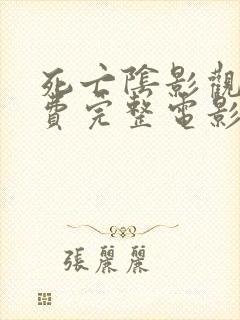 死亡陰影觀
費完整電影
張麗麗